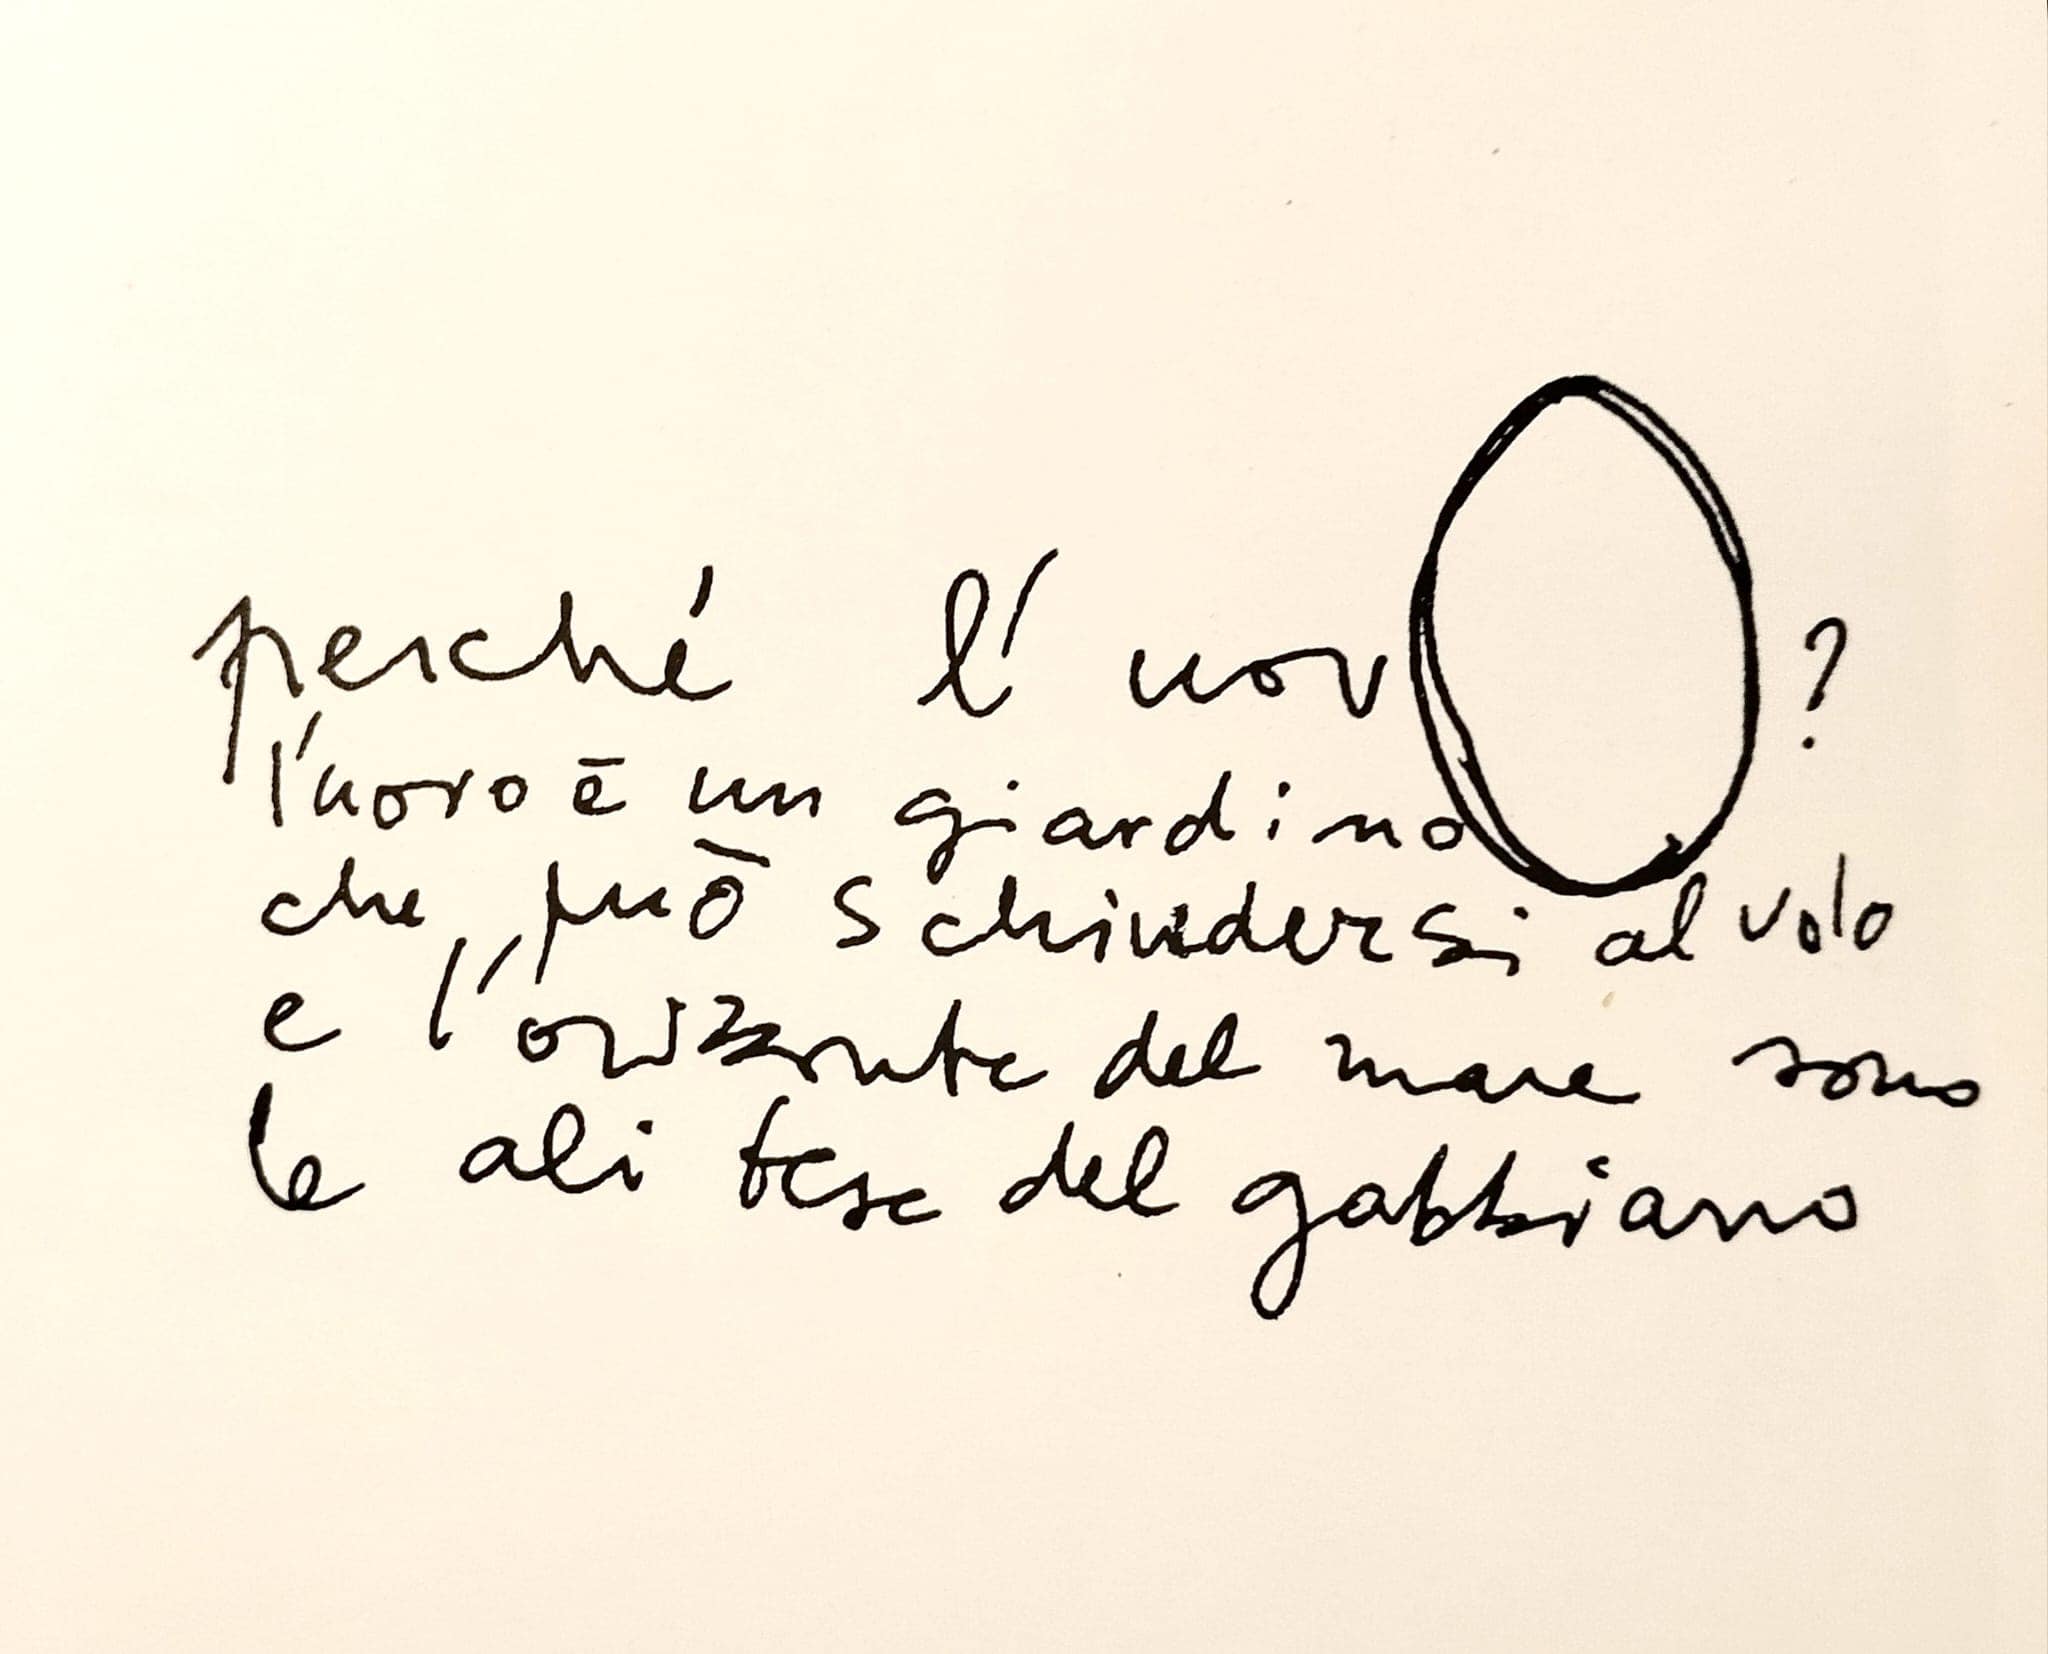 perché l'uovO?
l'uovo ē un giardino
che può schiudersi al volo
e l'orizzonte del mare sono
le ali tese del gabbiano